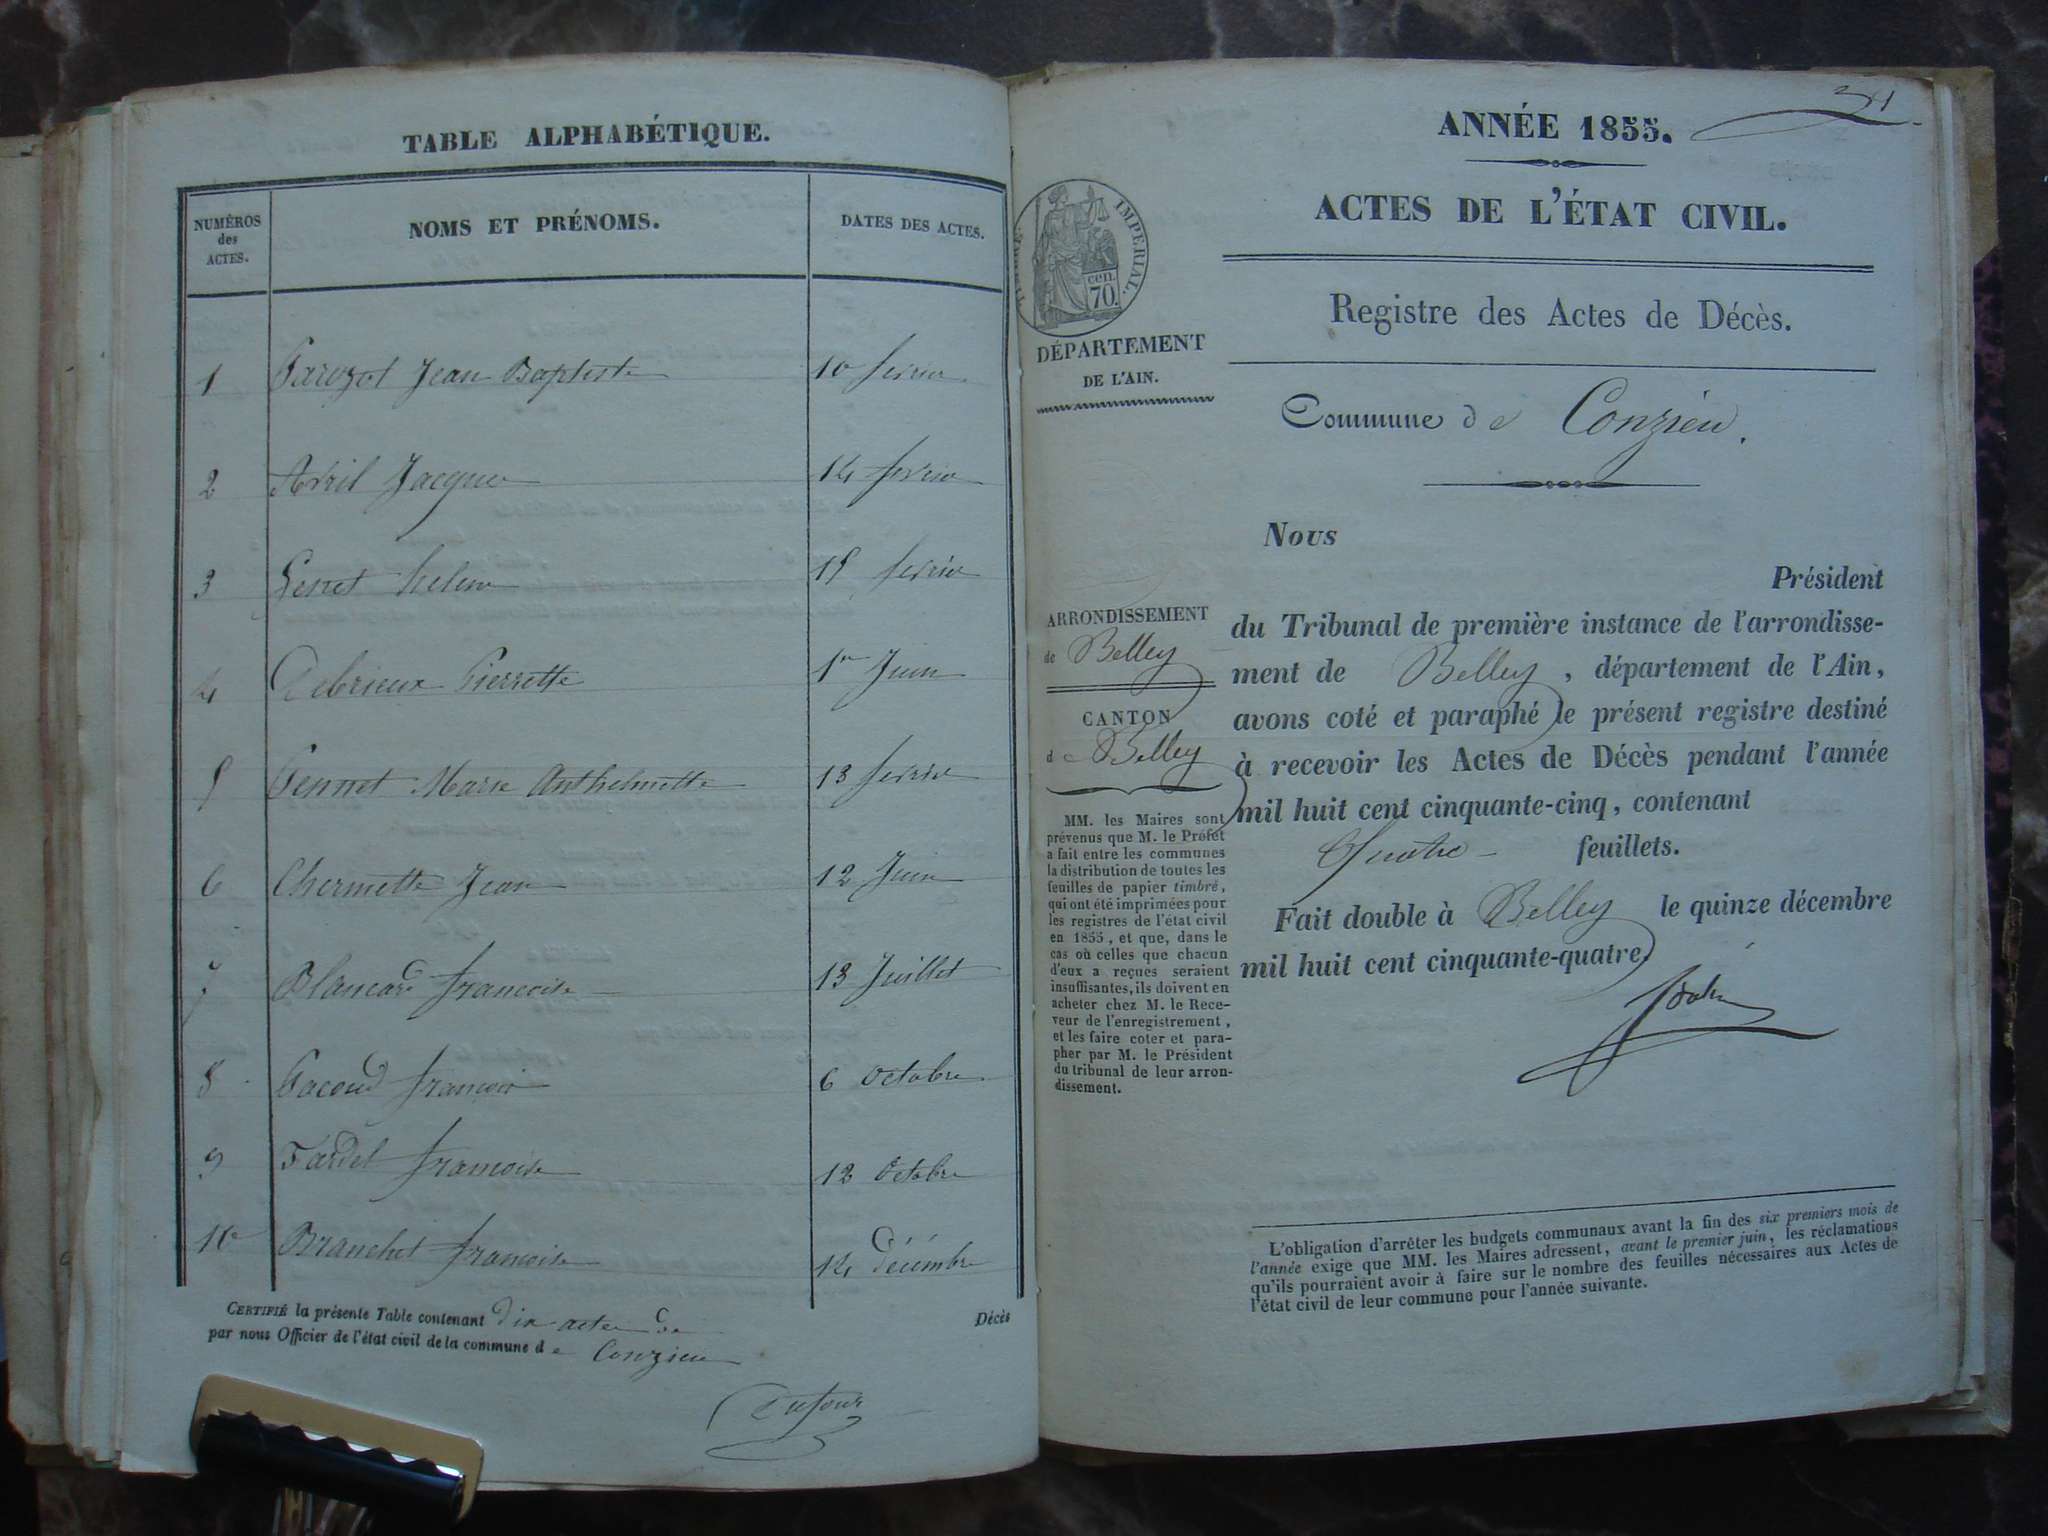 TABLE ALPHABÉTIQUE.
NUMÉROS des ACTES.
NOMS ET PRÉNOMS.
DATES DES ACTES.
1 Parozot Jean Baptiste 10 fevrier
2 Avril Jacque 14 fevrier
3 helene 15 fevrier
4 Debrieux Pierrette 1er Juin
5 Pennet Marie Anthelmette 13 fevrier
6 Chermette Jean 12 Juin
7 Blancard francoise 13 Juillet
8 Pacoud francois 6 octobre
9 Tardel francoise 12 Octobre
10 Branchet francoise 14 décémbre
CERTIFIÉ la présente Table contenant dix actes de Décès
par nous Officier de l'état civil de la commune de Conzieu
Dufour
ANNÉE 1855.
ACTES DE L'ÉTAT CIVIL.
TIMBRE IMPERIAL.
cen.
70.
DÉPARTEMENT
DE L'AIN.
Registre des Actes de Décès.
Commune de Conzieu.
ARRONDISSEMENT
de Belley
CANTON
de Belley
MM. les Maires sont
prévenus que M. le Préfet
a fait entre les communes
la distribution de toutes les
feuilles de papier timbré,
qui ont été imprimées pour
les registres de l'état civil
en 1855, et que, dans le
cas où celles que chacun
d'eux a reçues seraient
insuffisantes, ils doivent en
acheter chez M. le Rece-
veur de l'enregistrement,
et les faire coter et para-
pher par M. le Président
du tribunal de leur arron-
dissement.
Nous
Président
du Tribunal de première instance de l'arrondisse-
ment de Belley, département de l'Ain,
avons coté et paraphé le présent registre destiné
à recevoir les Actes de Décès pendant l'année
mil huit cent cinquante-cinq, contenant
Quatre feuillets.
Fait double à Belley le quinze décembre
mil huit cent cinquante-quatre.
L'obligation d'arrêter les budgets communaux avant la fin des six premiers mois de
l'année exige que MM. les Maires adressent, avant le premier juin, les réclamations
qu'ils pourraient avoir à faire sur le nombre des feuilles nécessaires aux Actes de
l'état civil de leur commune pour l'année suivante.